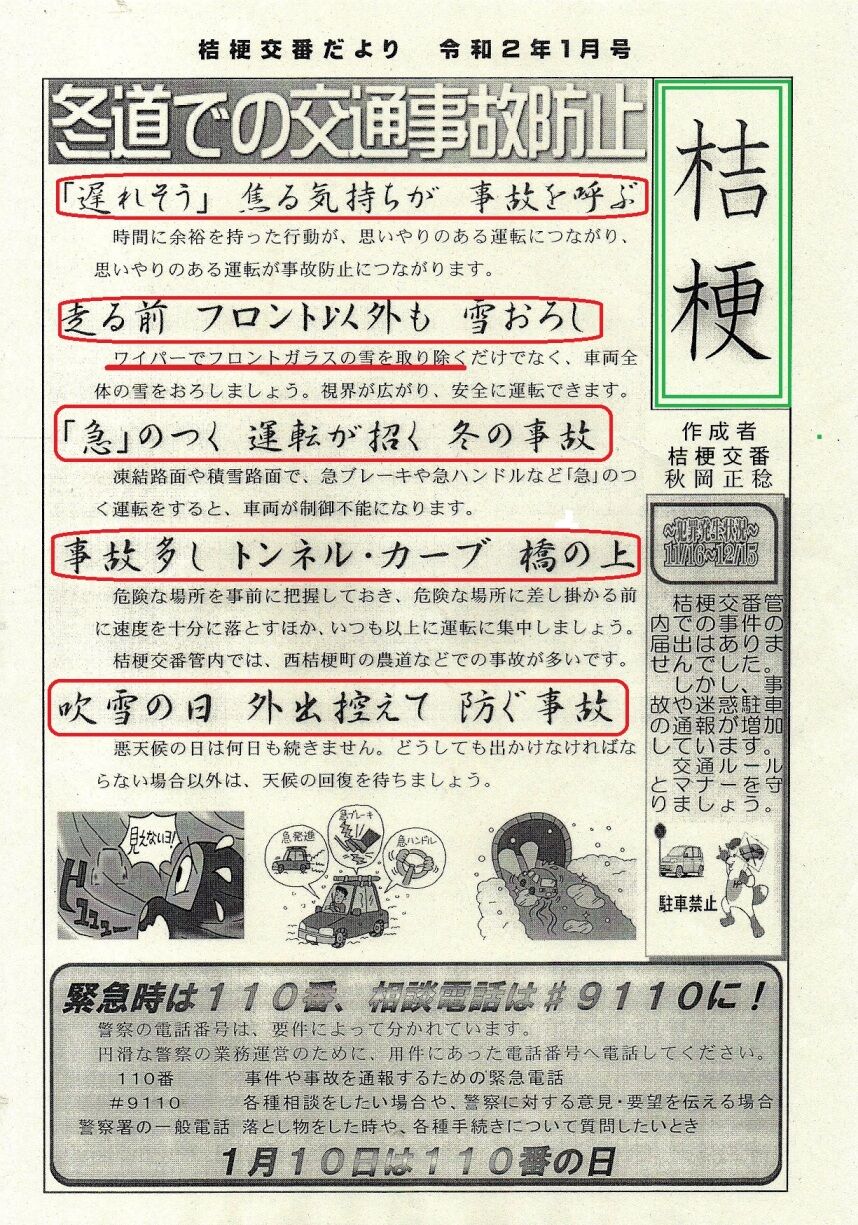 桔梗交番だより　令和2年1月号
冬道での交通事故防止
「遅れそう」 焦る気持ちが 事故を呼ぶ
時間に余裕を持った行動が、思いやりのある運転につながり、
思いやりのある運転が事故防止につながります。
走る前 フロント以外も 雪おろし
ワイパーでフロントガラスの雪を取り除くだけでなく、車両全
体の雪をおろしましょう。視界が広がり、安全に運転できます。
「急」のつく 運転が招く 冬の事故
凍結路面や積雪路面で、急ブレーキや急ハンドルなど「急」のつ
く運転をすると、車両が制御不能になります。
事故多し トンネル・カーブ 橋の上
危険な場所を事前に把握しておき、危険な場所に差し掛かる前
に速度を十分に落とすほか、いつも以上に運転に集中しましょう。
桔梗交番管内では、西桔梗町の農道などでの事故が多いです。
吹雪の日 外出控えて 防ぐ事故
悪天候の日は何日も続きません。どうしても出かけなければな
らない場合以外は、天候の回復を待ちましょう。
見えないヨ!
ビュュュー
急発進
急ブレーキ
急ハンドル
桔梗
作成者
桔梗交番
秋岡正稔
～犯罪発生状況～
11/16～12/15
桔梗交番管
内での事件の
届出はありま
せんでした。
しかし、事
故や迷惑駐車
の通報が増加
しています。
交通ルール
とマナーを守
りましょう。
駐車禁止
緊急時は110番、相談電話は#9110に!
警察の電話番号は、要件によって分かれています。
円滑な警察の業務運営のために、用件にあった電話番号へ電話してください。
110番　事件や事故を通報するための緊急電話
#9110　各種相談をしたい場合や、警察に対する意見・要望を伝える場合
警察署の一般電話 落とし物をした時や、各種手続きについて質問したいとき
1月10日は110番の日